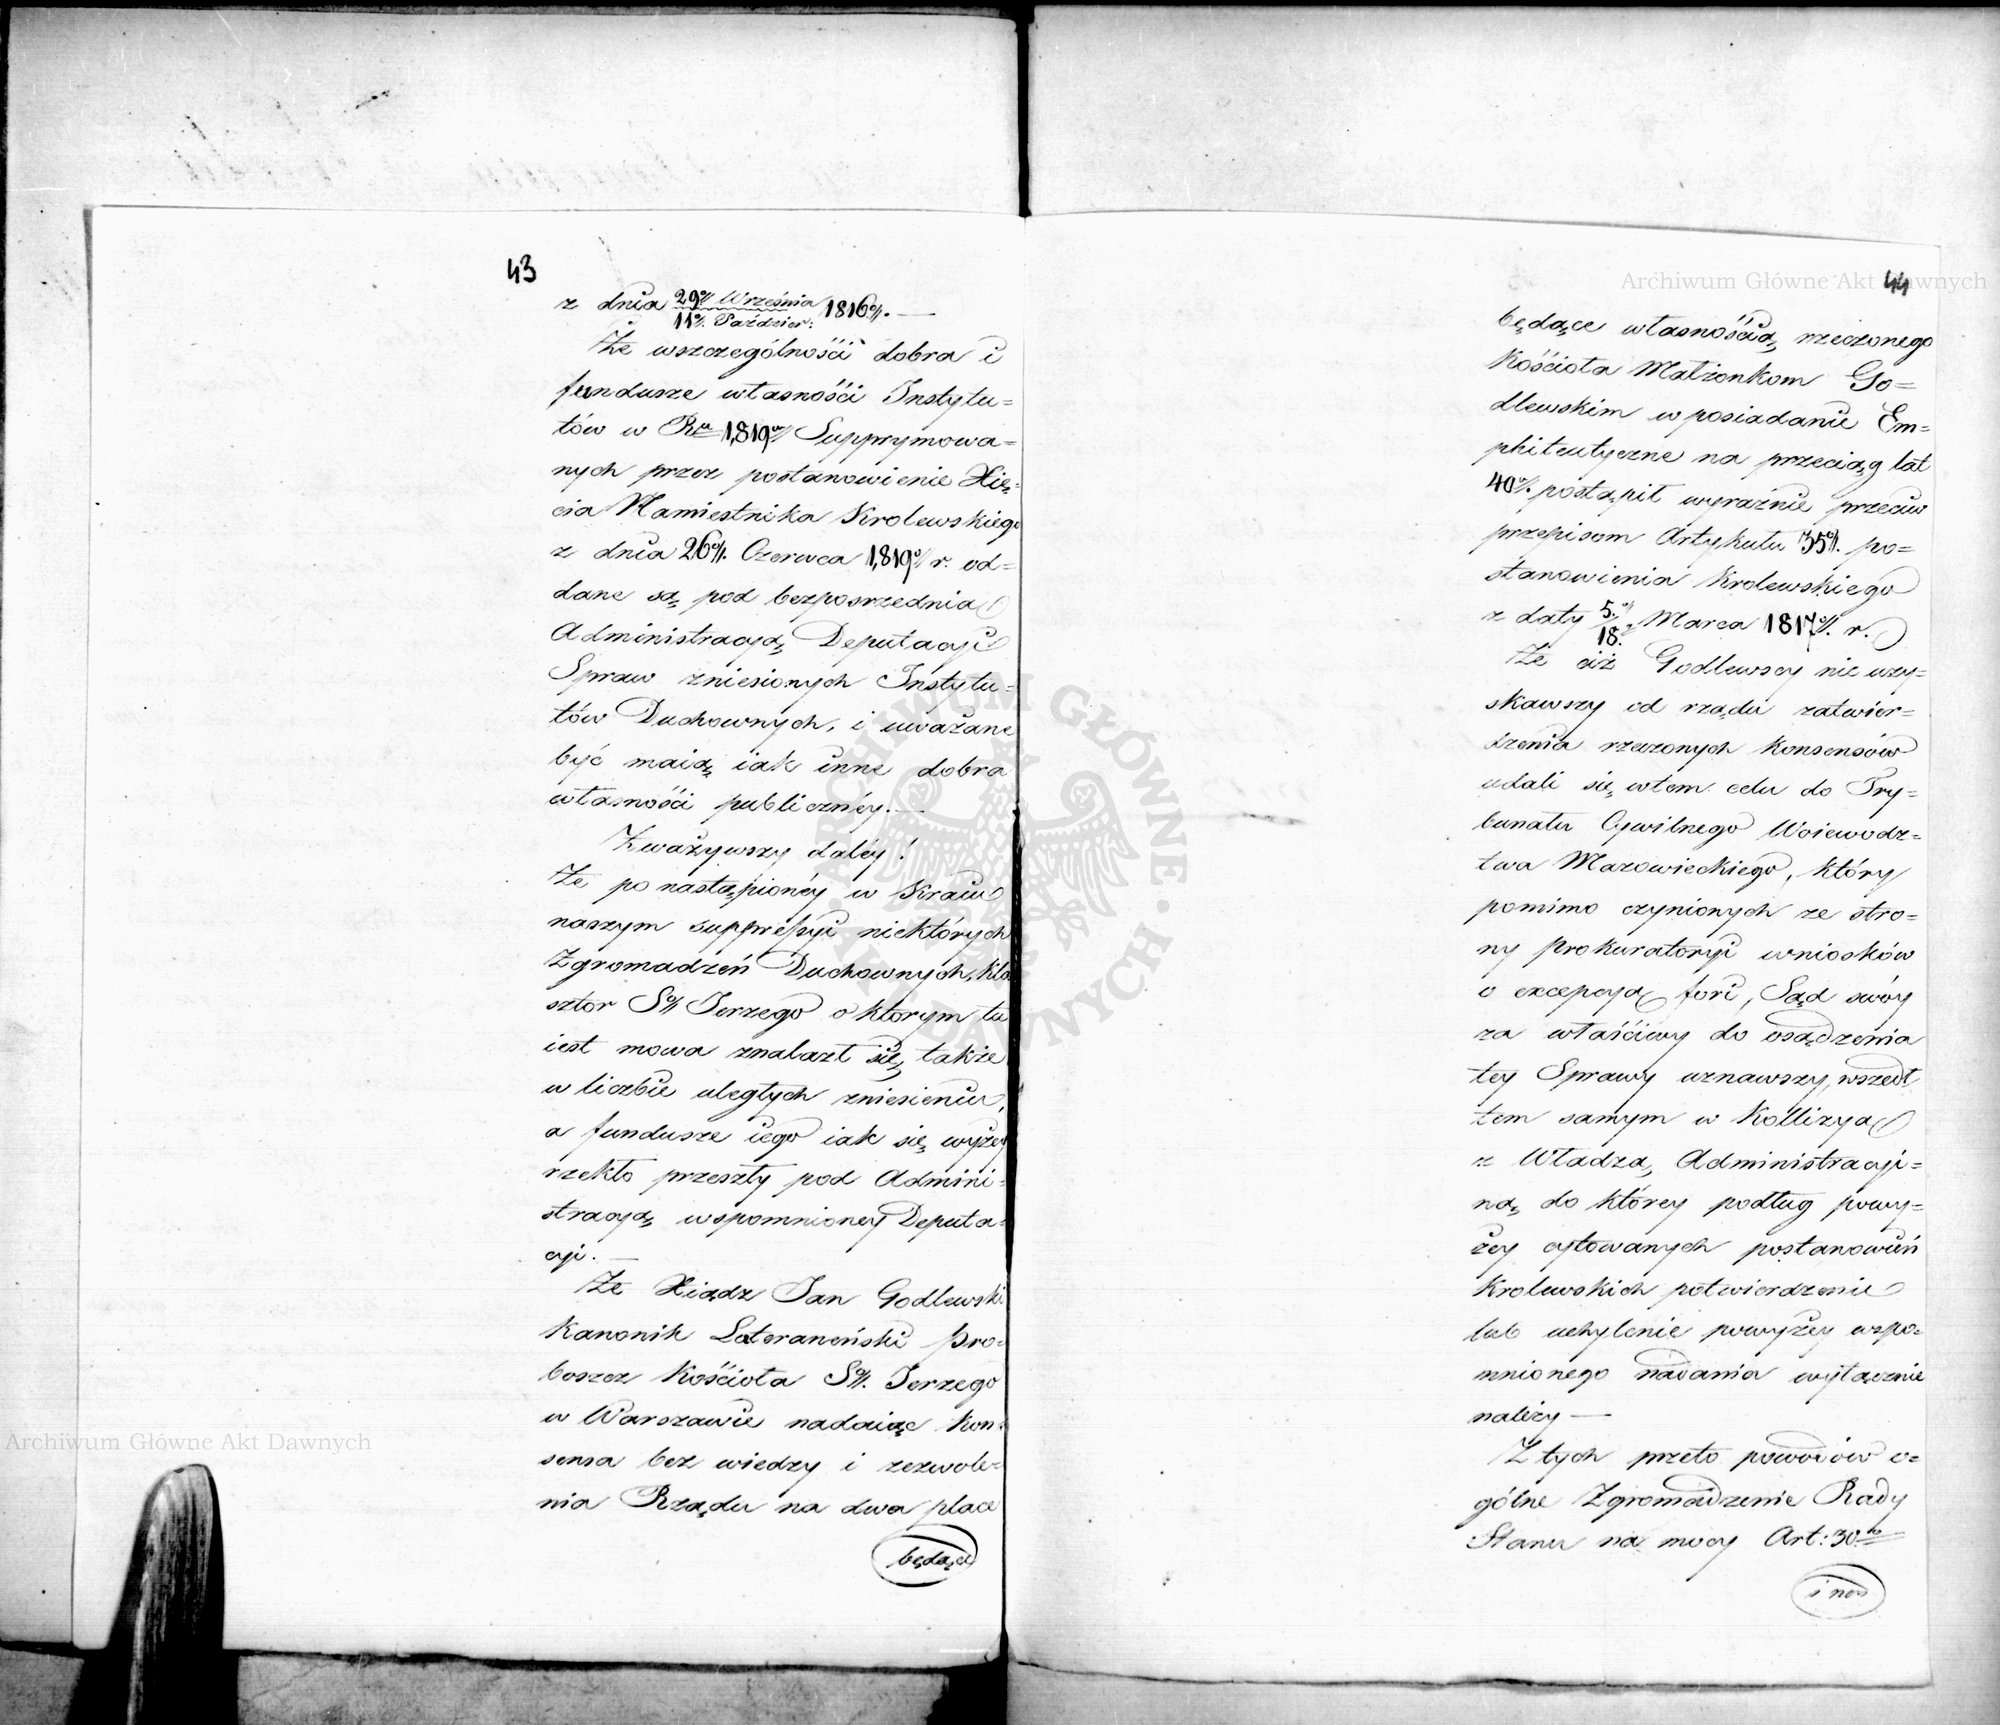 43
z dnia 29º/. Września 1816º/. —
11º/. Paździer:
Że wszczególnośći dobra i
fundusze własnośći Instytu=
tów w Ru 1,819º/ Supprymowa=
nych przez postanowienie Xię=
cia Namiestnika Krolewskiego
z dnia 26º/. Czerwca 1,819º/ r. od=
dane są pod bezposrzednia
Administracyą Deputacyi
Spraw zniesionych Instytu=
tów Duchownych, i uważane
być maią iak inne dobra
własnośći publicznéy. —
Zważywszy daléy!
Że po nastąpionéy w Kraiu
naszym suppressyi niektórych
Zgromadzeń Duchownych, kla
sztor Sº/ Jerzego o ktorym tu
iest mowa znalazł się także
w liczbie uległych zniesieniu,
a fundusze iego iak się wyżey
rzekło przeszły pod Admini=
stracyą wspomnioney Deputa=
cyi. —
Że Xiądz Jan Godlewski
Kanonik Lateraneński Pro=
boszcz Kośćioła Sº/. Jerzego
w Warszawie nadaiąc Kon=
sensa bez wiedzy i zezwole=
nia Rządu na dwa place
będące
44
będące własnośćią rzeczonego
Kośćioła Małżonkom Go=
dlewskim w posiadanie Em=
phiteutyczne na przeciąg lat
40º/. postąpił wyraźnie przeciw
przepisom Artykułu 35º/. po=
stanowienia Krolewskiego
z daty 5./18. Marca 1817º/. r.
Że ciż Godlewscy nie uzy=
skawszy od rządu zatwier=
dzenia rzeczonych Konsensów
udali się wtem celu do Try=
bunału Cywilnego Woiewodz=
twa Mazowieckiego, który
pomimo czynionych ze stro=
ny Prokuratoryi wniosków
o excepcyą fori, Sąd swóy
za właśćiwy do osądzenia
tey Sprawy uznawszy, wszedł
tem samym w Kollizyą
z Władzą Administracyi=
ną do którey podług powy=
żey cytowanych postanowień
Krolewskich potwierdzenie
lub uchylenie powyżey wspo=
mnionego nadania wyłącznie
należy —
Z tych przeto powodów o=
gólne Zgromadzenie Rady
Stanu na mocy Art: 30º
i
Archiwum Główne Akt Dawnych
Archiwum Główne Akt Dawnych
ARCHIWUM GŁÓWNE AKT DAWNYCH